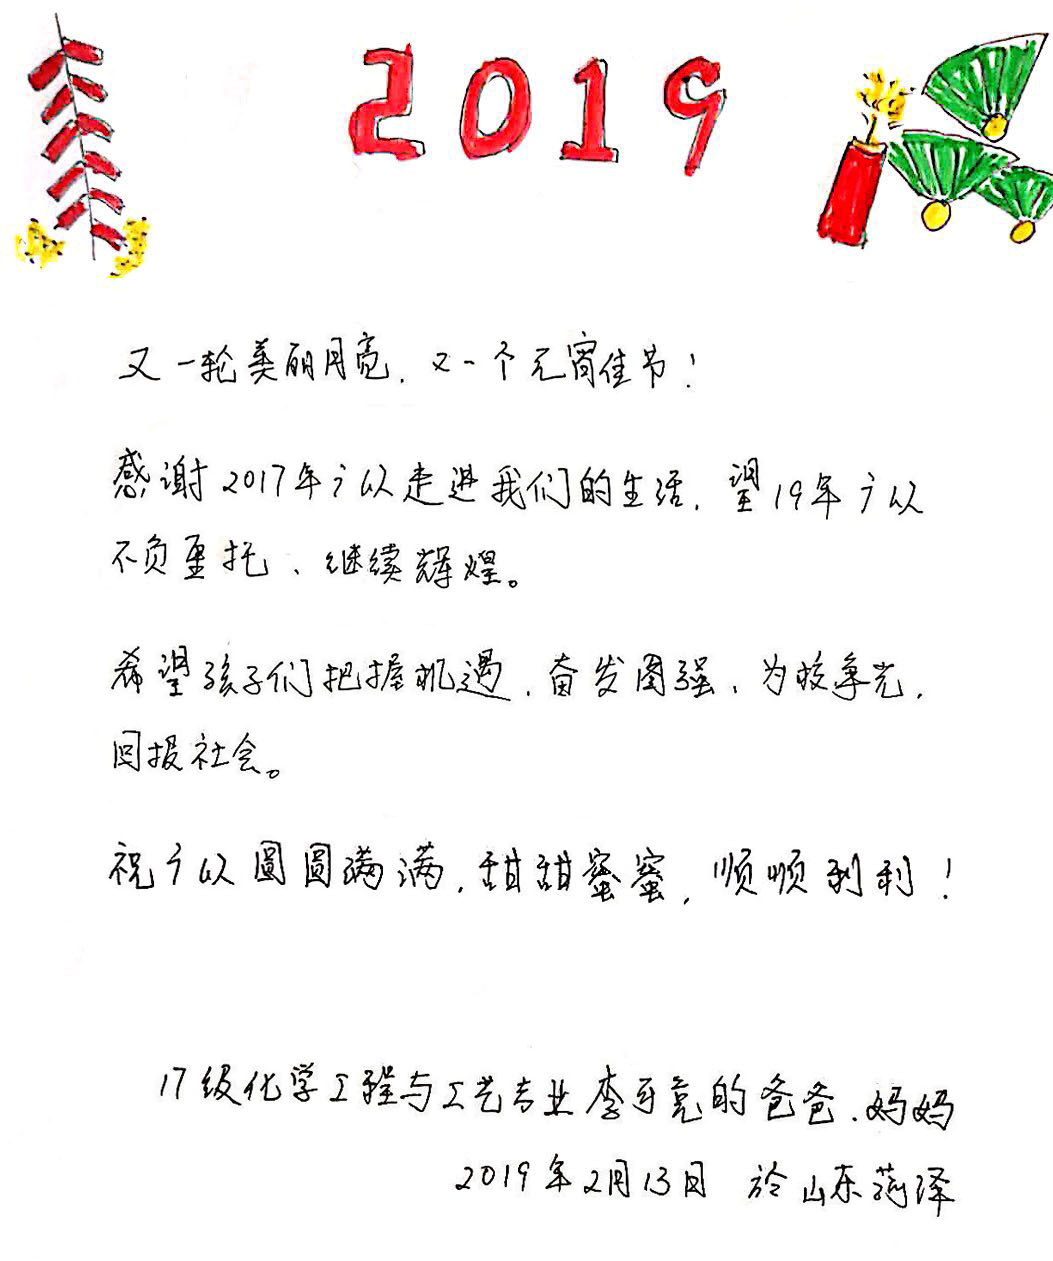 2019
又一轮美丽月亮，又一个元宵佳节！
感谢2017年广以走进我们的生活，望19年广以
不负重托、继续辉煌。
希望孩子们把握机遇，奋发图强、为校争光，
回报社会。
祝广以圆圆满满，甜甜蜜蜜，顺顺利利！
17级化学工程与工艺专业李可亮的爸爸、妈妈
2019年2月13日 於山东菏泽